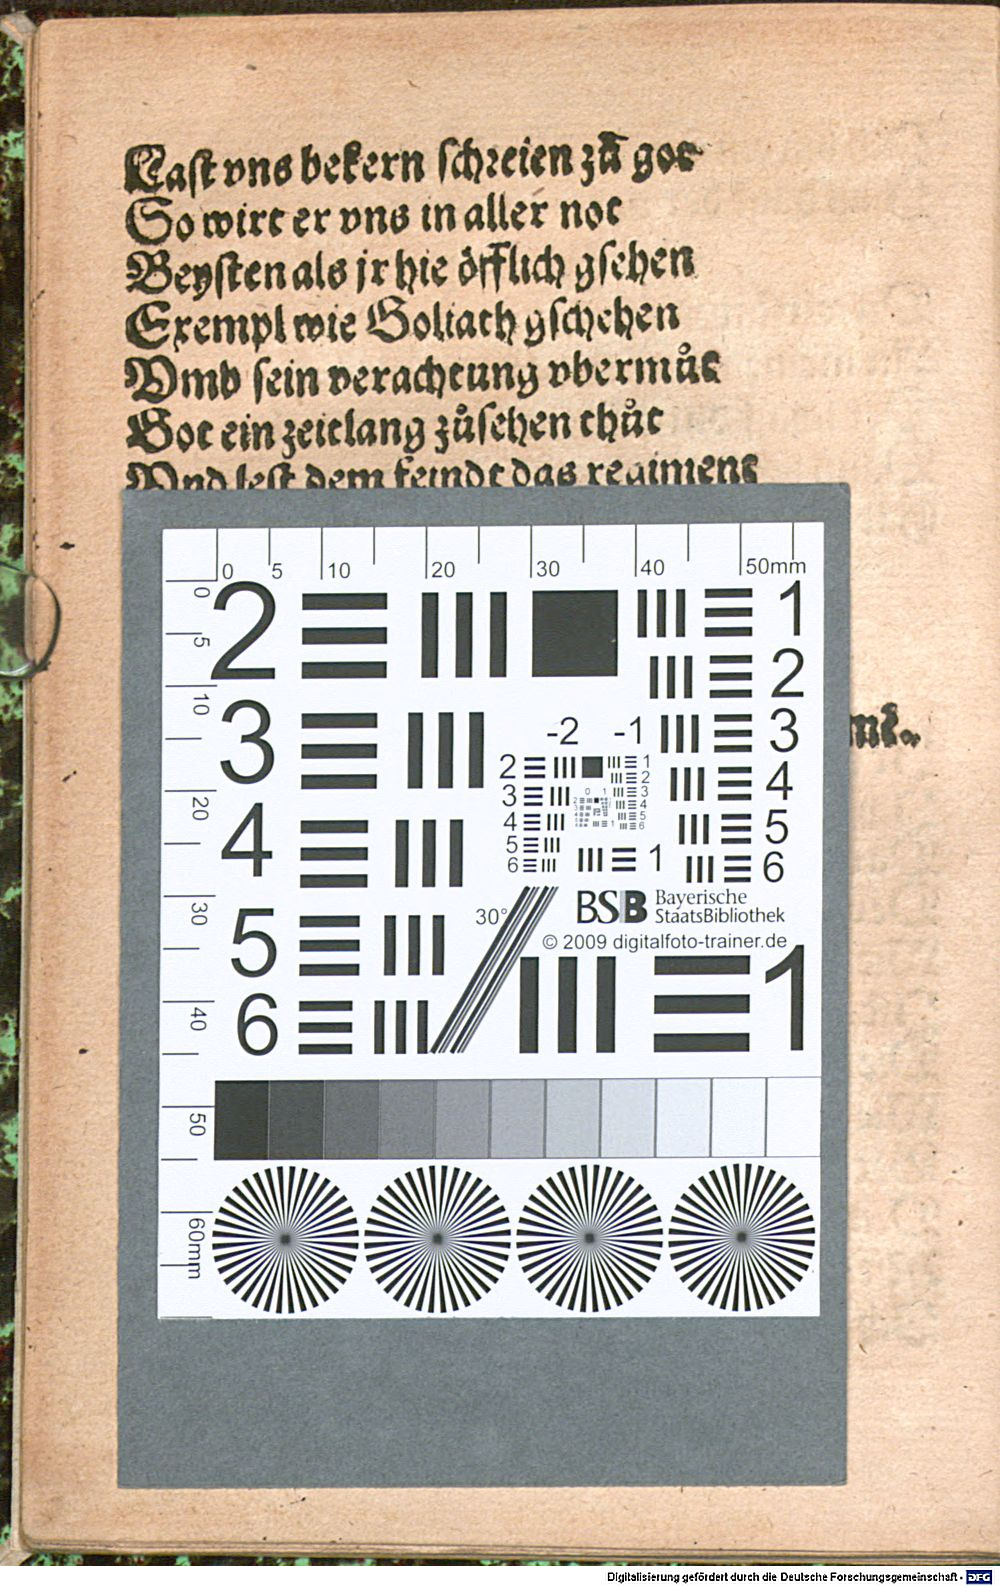 Last vns bekern schreien zů got
So wirt er vns in aller not
Beysten als jr hie öfflich gsehen
Exempl wie Goliath gschehen
Vmb sein verachtung vbermůt
Got ein zeitlang zůsehen thůt
Vnd lest dem feindt das regiment
0 5 10 20 30 40 50mm
0 5 10 20 30 40 50 60mm
2 1
2
3 -2 -1 3
2 1
2
3 0 1 3
4 4
4 4
5 5
5 5
6 6
6 1 6
30°
BSB Bayerische
StaatsBibliothek
© 2009 digitalfoto-trainer.de
5 1
6
Digitalisierung gefördert durch die Deutsche Forschungsgemeinschaft - DFG